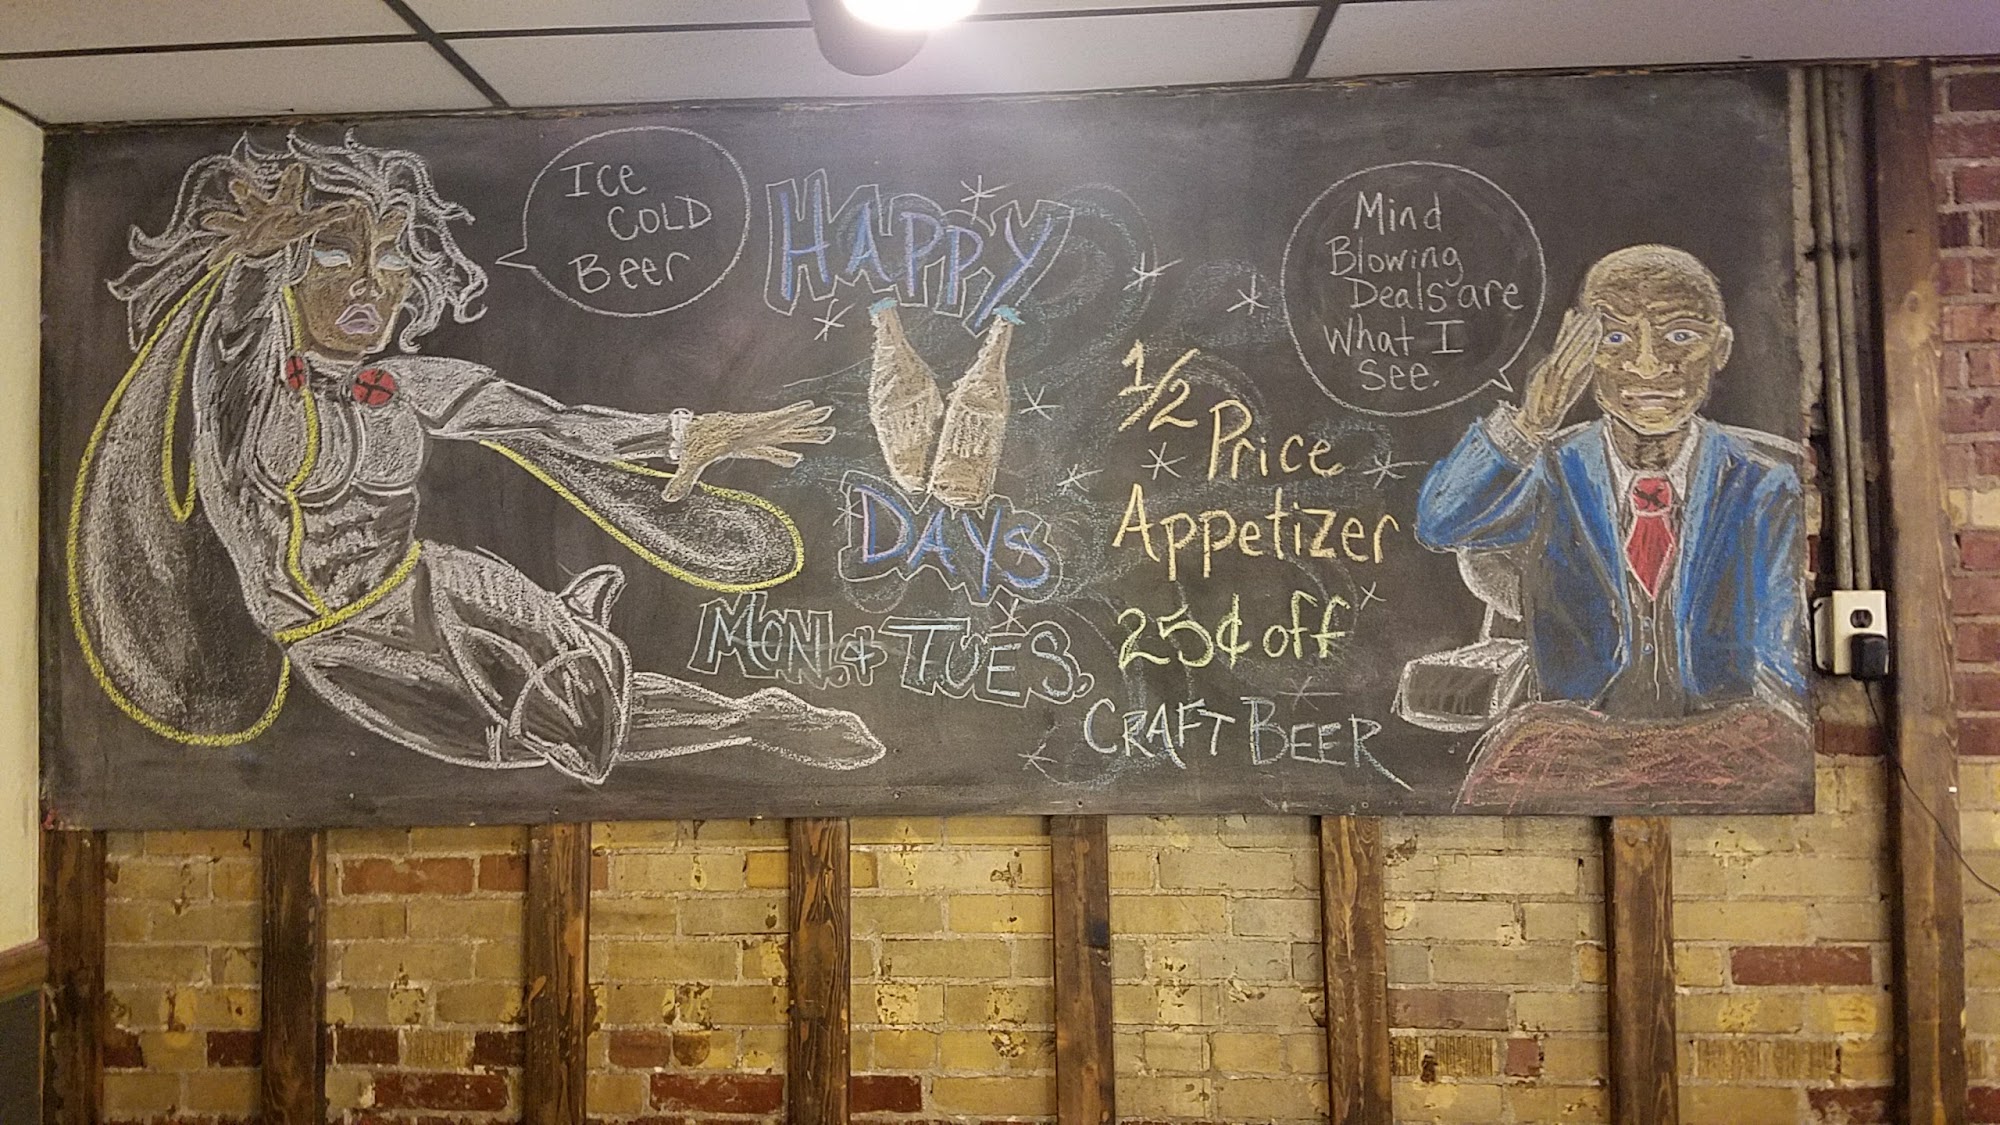 Ice
COLD
Beer
HAPPY
DAYS
MON. & TUES.
1/2
Price
Appetizer
25¢ off
CRAFT BEER
Mind
Blowing
Deals are
What I
See.